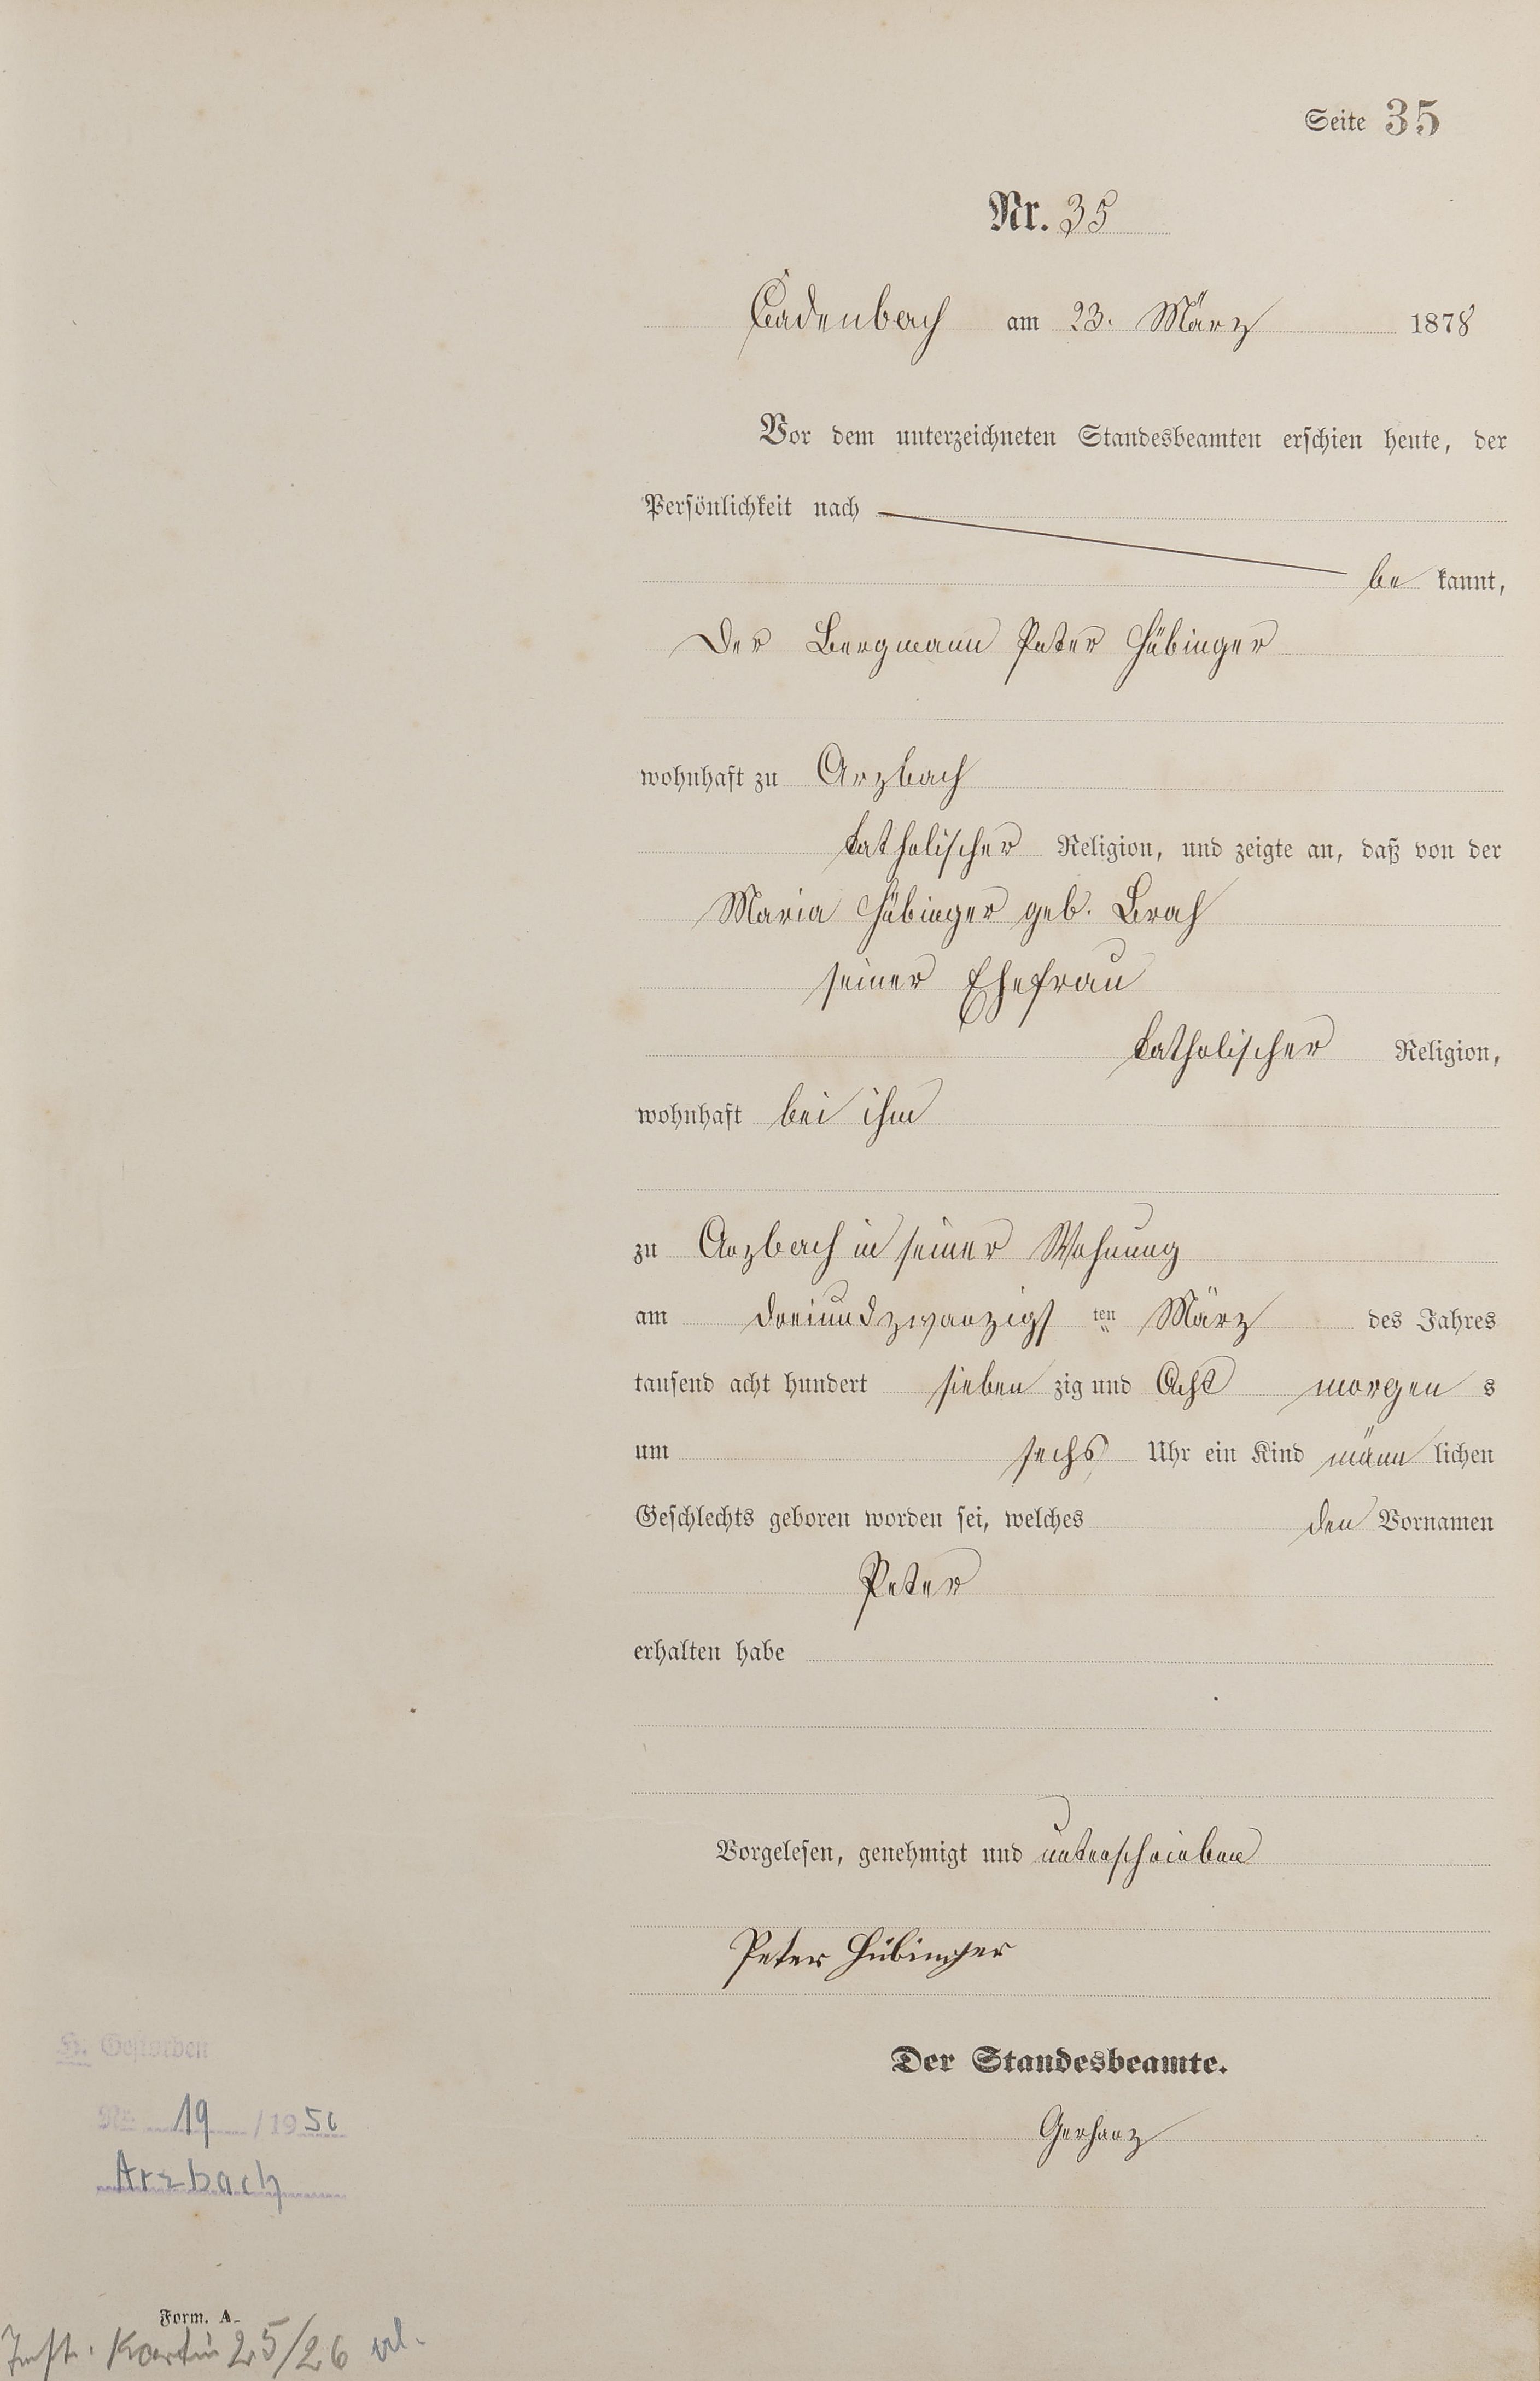 Seite 35
Nr. 35
Cadenbach am 23. März 1878
Vor dem unterzeichneten Standesbeamten erschien heute, der
Persönlichkeit nach
be kannt,
der Bergmann Peter Hübinger
wohnhaft zu Arzbach
katholischer Religion, und zeigte an, daß von der
Maria Hübinger geb. Brach
seiner Ehefrau
katholischer Religion,
wohnhaft bei ihm
zu Arzbach in seiner Wohnung
am dreiundzwanzigs ten März des Jahres
tausend acht hundert sieben zig und Acht morgen s
um sechs Uhr ein Kind männ lichen
Geschlechts geboren worden sei, welches den Vornamen
Peter
erhalten habe
Vorgelesen, genehmigt und unterschrieben
Peter Hübinger
Der Standesbeamte.
Gerharz
H. Gestorben
Nr. 19 / 1950
Arzbach
Form. A.
25/26